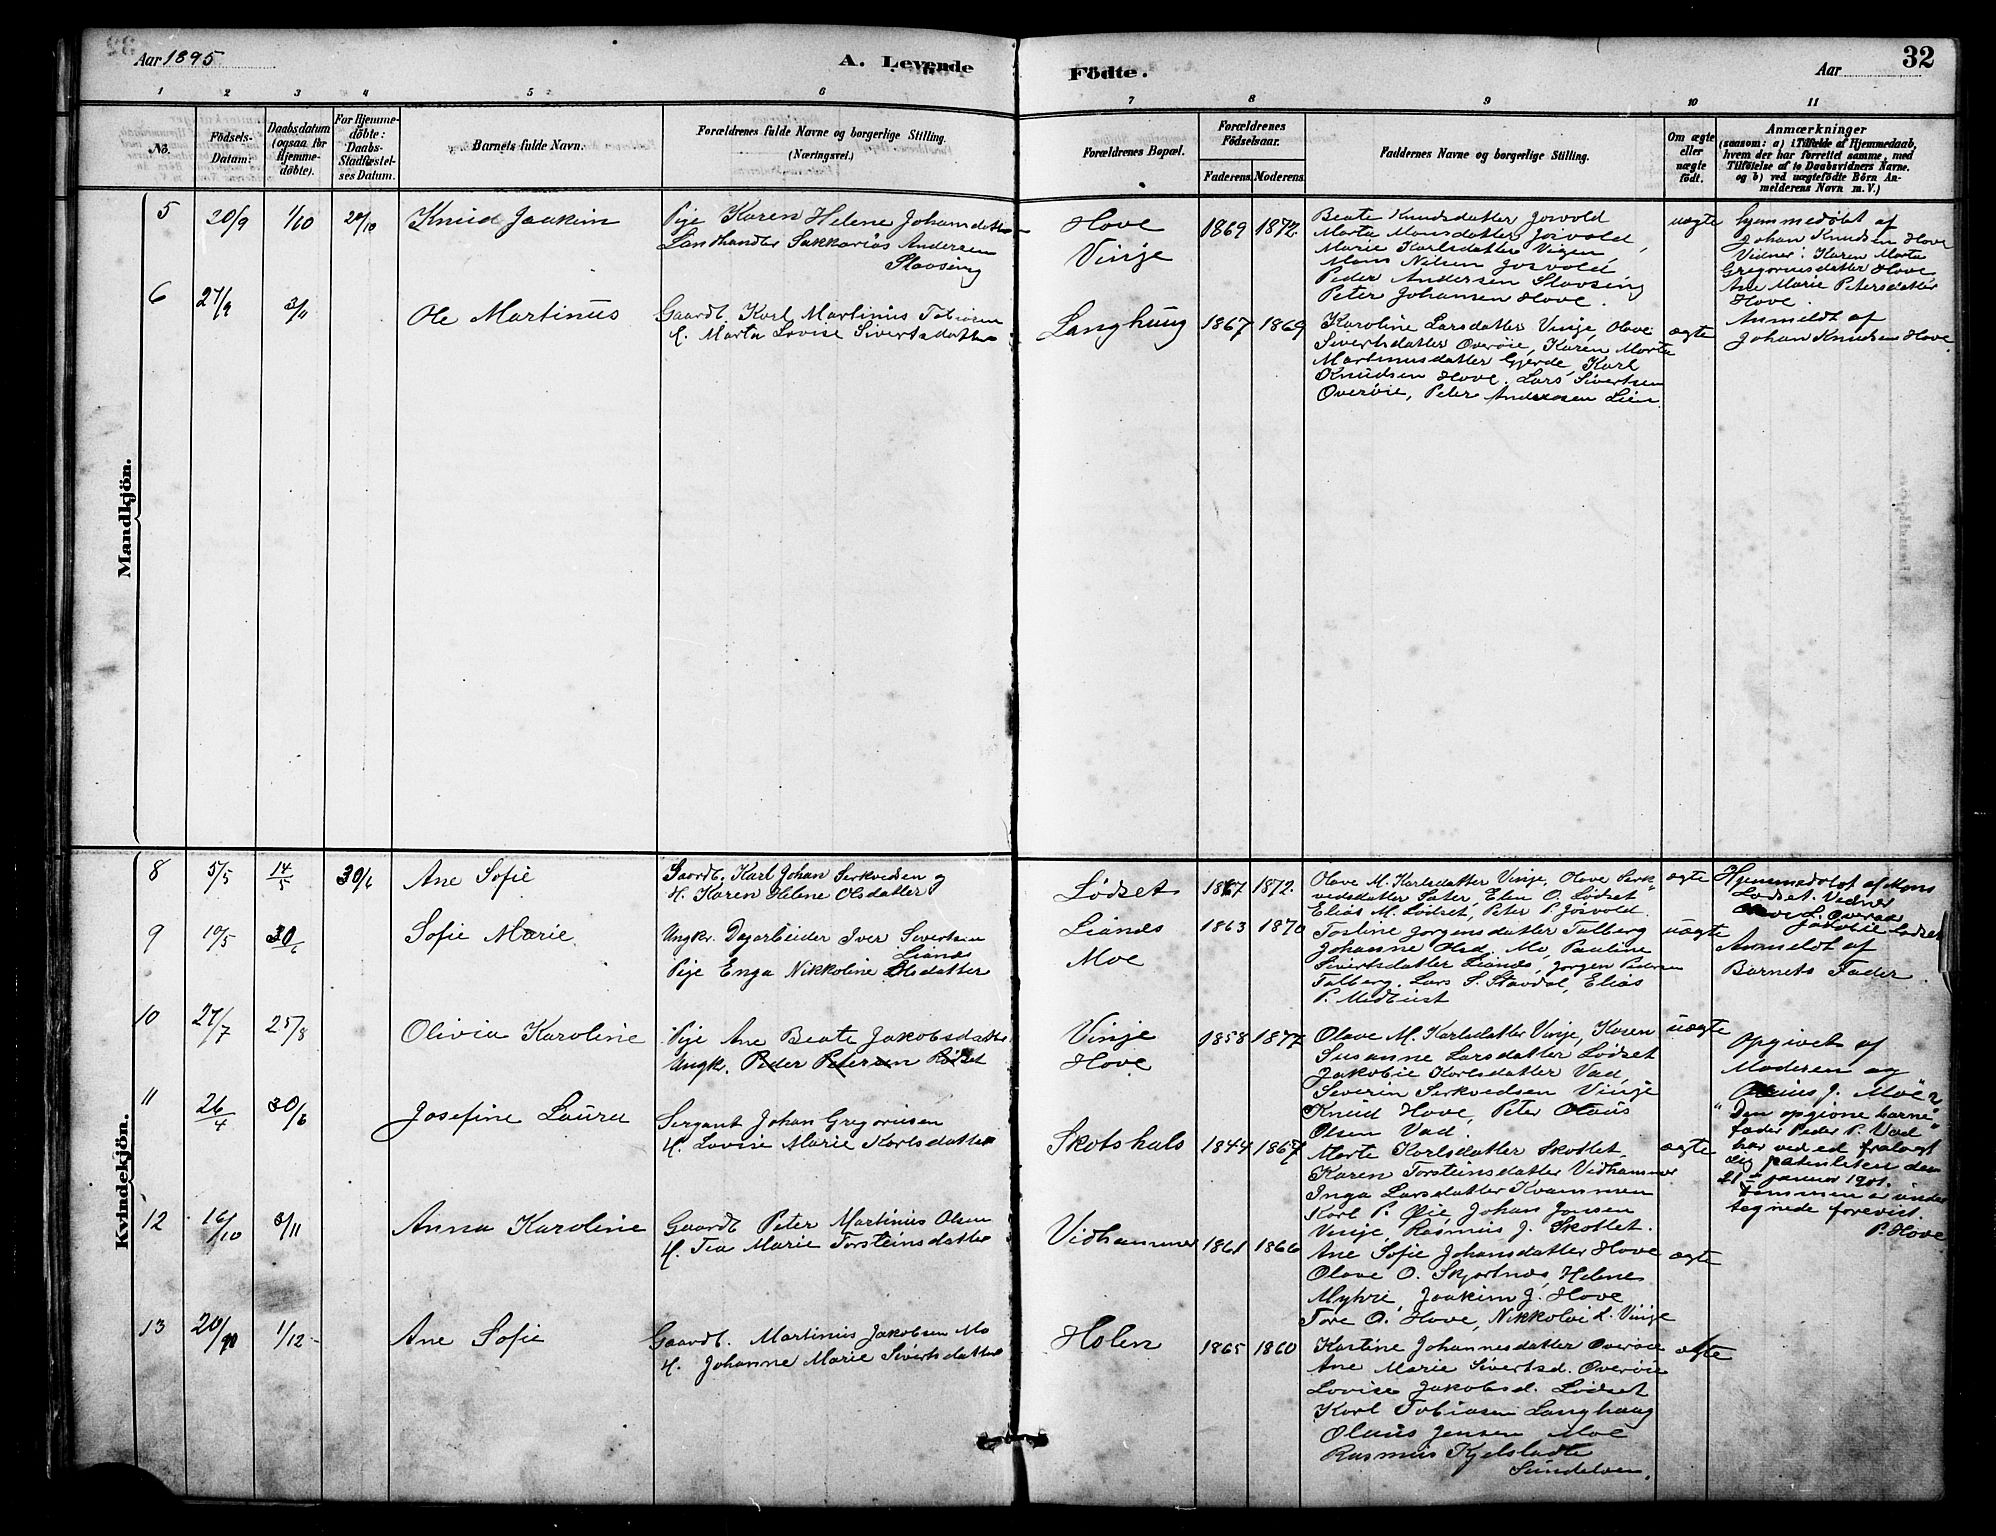 Aar 1895
A. Levende
Födte.
Aar
32
1 2 3 4 5 6 7 8 9 10 11
No.
Födsels-
Datum.
Daabsdatum
(ogsaa for
Hjemme-
döbte).
For Hjemme-
döbte:
Daabs-
Stadfæstel-
ses Datum.
Barnets fulde Navn.
Forældrenes fulde Navne og borgerlige Stilling.
(Næringsvei.)
Forældrenes Bopæl.
Forældrenes
Födselsaar.
Faderens. Moderens.
Faddernes Navne og borgerlige Stilling.
Om ægte
eller
uægte
födt.
Anmærkninger
(saasom: a) i Tilfælde af Hjemmedaab,
hvem der har forrettet samme, med
Tilföielse af to Daabsvidners Navne.
og b) ved uægtefödte Börn An-
melderens Navn m. V.)
Mandkjön.
5 20/9 1/10 20/10 Knud Joakim
Pige Karen Helene Johansdatter
Landhandler Sakkarias Andersen
Slaosing
Hove
Vinje
1869 1872.
Beate Knudsdatter Josvold
Marta Monsdatter Josvold,
Marie Karlsdatter Vigen
Mons Nilsen Josvold
Peder Andersen Slaosing
Peter Johansen Hove.
uægte
hjemmedøbt af
Johan Knudsen Hove
Vidner: Karen Marta
Gregoriusdatter Hove
Ane Marie Petersdatter
Hove.
Anmeldt af
Johan Knudsen Hove.
6 27/9 3/11 Ole Martinus
Gaardb. Karl Martinus Tobiasen
H. Marta Lovise Sivertsdatter
Langhaug 1867 1869
Karoline Larsdatter Vinje, Olave
Sivertsdatter Overøie, Karen Marta
Martinusdatter Gjerde, Karl
Knudsen Hove. Lars Sivertsen
Overøie, Peter Andersen Lien
ægte
Kvindekjön.
8 5/5 14/5 30/6 Ane Sofie
Gaardb. Karl Johan Serkvedsen og
H. Karen Helene Olsdatter
Lødset 1867 1872.
Olave M. Karlsdatter Vinje, Olave Serk-
vedsdatter Sæter, Elen O. Lødset
Elias M. Lødset, Peter P. Jøsvold.
ægte
Hjemmedøbt af Mons
Lødset. Vidner
9 10/5 30/6 Sofie Marie.
Ungkr. Dagarbeider Iver Sivertsen
Lianes
Pige Enga Nikkoline Olsdatter
Lianes
Moe
1863 1870
Torline Jørgensdatter Talberg
Johanne Olsd. Mo, Pauline
Sivertsdatter Lianes, Jørgen Pedersen
Talberg. Lars S. Stavdal, Elias
P. Medtust
uægte
Anmeldt af
Barnets Fader
10 27/7 25/8 Olivia Karoline
Pige Ane Beate Jakobsdatter
Ungk. Peder Petersen
Vinje
Hove
1858 1877
Olave M. Karlsdatter Vinje, Karen
Susanne Larsdatter Lødset
Jakobie Karlsdatter Vad,
Severin Serkvedsen Vinje
Knud Hove, Peter Olaus
Olsen Vad.
uægte
Opgivet af
Moderen og
J. Moe
"Den opgivne barne"
fader Peder P. Vad
har ved ed fralagt
sig paterniteten den
21 januar 1901.
Dommen er under
tegnede forevist.
P. Hove
11 26/4 30/6 Josefine Laura
Sergant Johan Gregoriusen
H. Lovise Marie Karlsdatter
Skotshals 1844 1867
Marte Karlsdatter Skottet,
Karen Torsteinsdatter Vidhammer
Inga Larsdatter Kvammen
Karl P. Øie Johan Jonsen
Vinje Rasmus J. Skottet.
ægte
12 16/10 3/11 Anna Karoline
Gaardb Peter Martinus Olsen
H. Tea Marie Torsteinsdatter
Vidhammer 1861 1866
Ane Sofie Johansdatter Hove
Olave O. Skjortnes, Helene
Myhre, Joakim J. Hove
Tore O. Hove, Nikkolai L. Vinje
ægte
13 20/10 1/12 Ane Sofie
Gaardb. Martinus Jakobsen Mo
H. Johanne Marie Sivertsdatter
Holen 1865 1860
Kastine Johannesdatter Overøie
Ane Marie Sivertsd. Overøie
Lovise Jakobsd. Lødset
Karl Tobiasen Langhaug
Olaus Jensen Moe
Rasmus Kjelstadte
Sundelven.
ægte